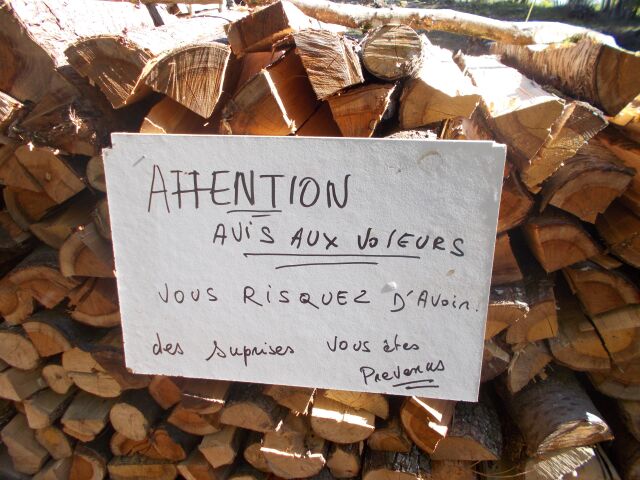 ATTENTION
AVIS AUX VOLEURS
VOUS RISQUEZ D'AVOIR.
des suprises vous êtes
Prevenus